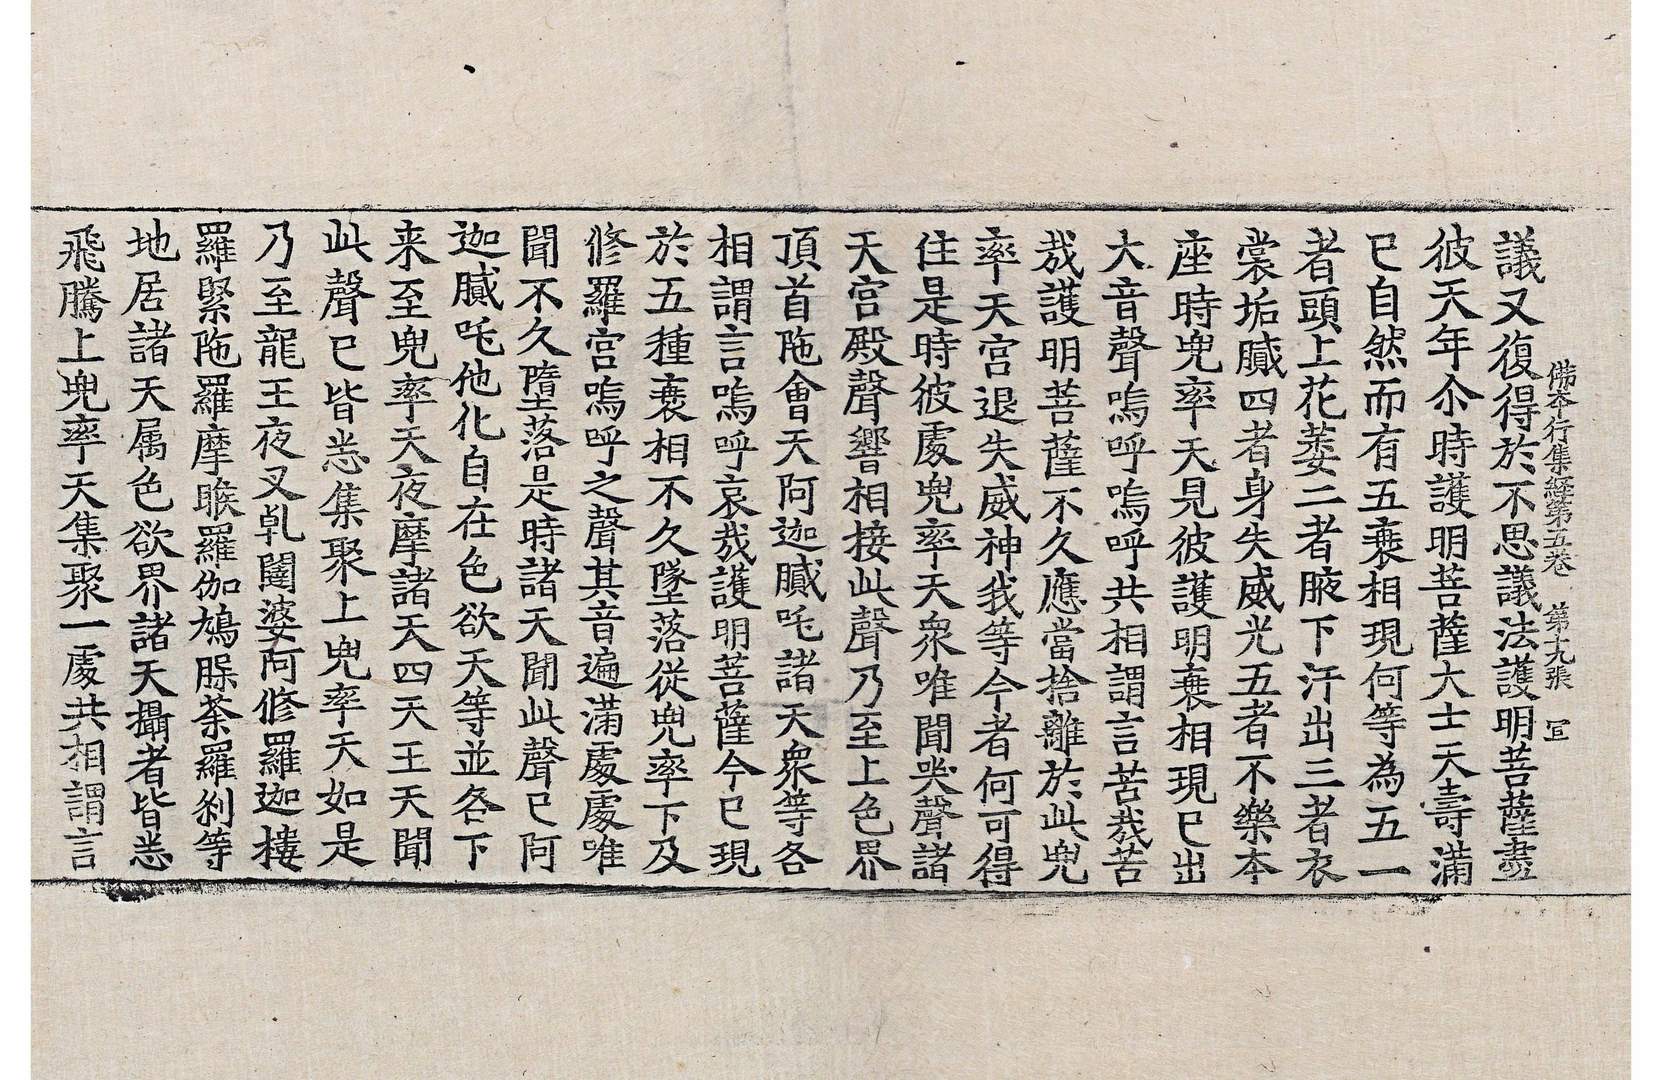 佛本行集經第五卷　第十九張　宣
議又復得於不思議法護明菩薩盡
彼天年尒時護明菩薩大士天壽滿
已自然而有五衰相現何等為五一
者頭上花萎二者腋下汗出三者衣
裳垢膩四者身失威光五者不樂本
座時兜率天見彼護明衰相現已出
大音聲嗚呼嗚呼共相謂言苦㢤苦
㢤護明菩薩不久應當捨離於此兜
率天宮退失威神我等今者何可得
住是時彼處兜率天衆唯聞哭聲諸
天宮殿聲響相接此聲乃至上色界
頂首陁會天阿迦膩吒諸天衆等各
相謂言嗚呼哀㢤護明菩薩今已現
於五種衰相不久墜落從兜率下及
修羅宮嗚呼之聲其音遍滿處處唯
聞不久墮落是時諸天聞此聲已阿
迦膩吒他化自在色欲天等並各下
来至兜率天夜摩諸天四天王天聞
此聲已皆悉集聚上兜率天如是
乃至龍王夜叉乹闥婆阿修羅迦樓
羅緊陁羅摩睺羅伽鳩槃荼羅剎等
地居諸天属色欲界諸天攝者皆悉
飛騰上兜率天集聚一處共相謂言